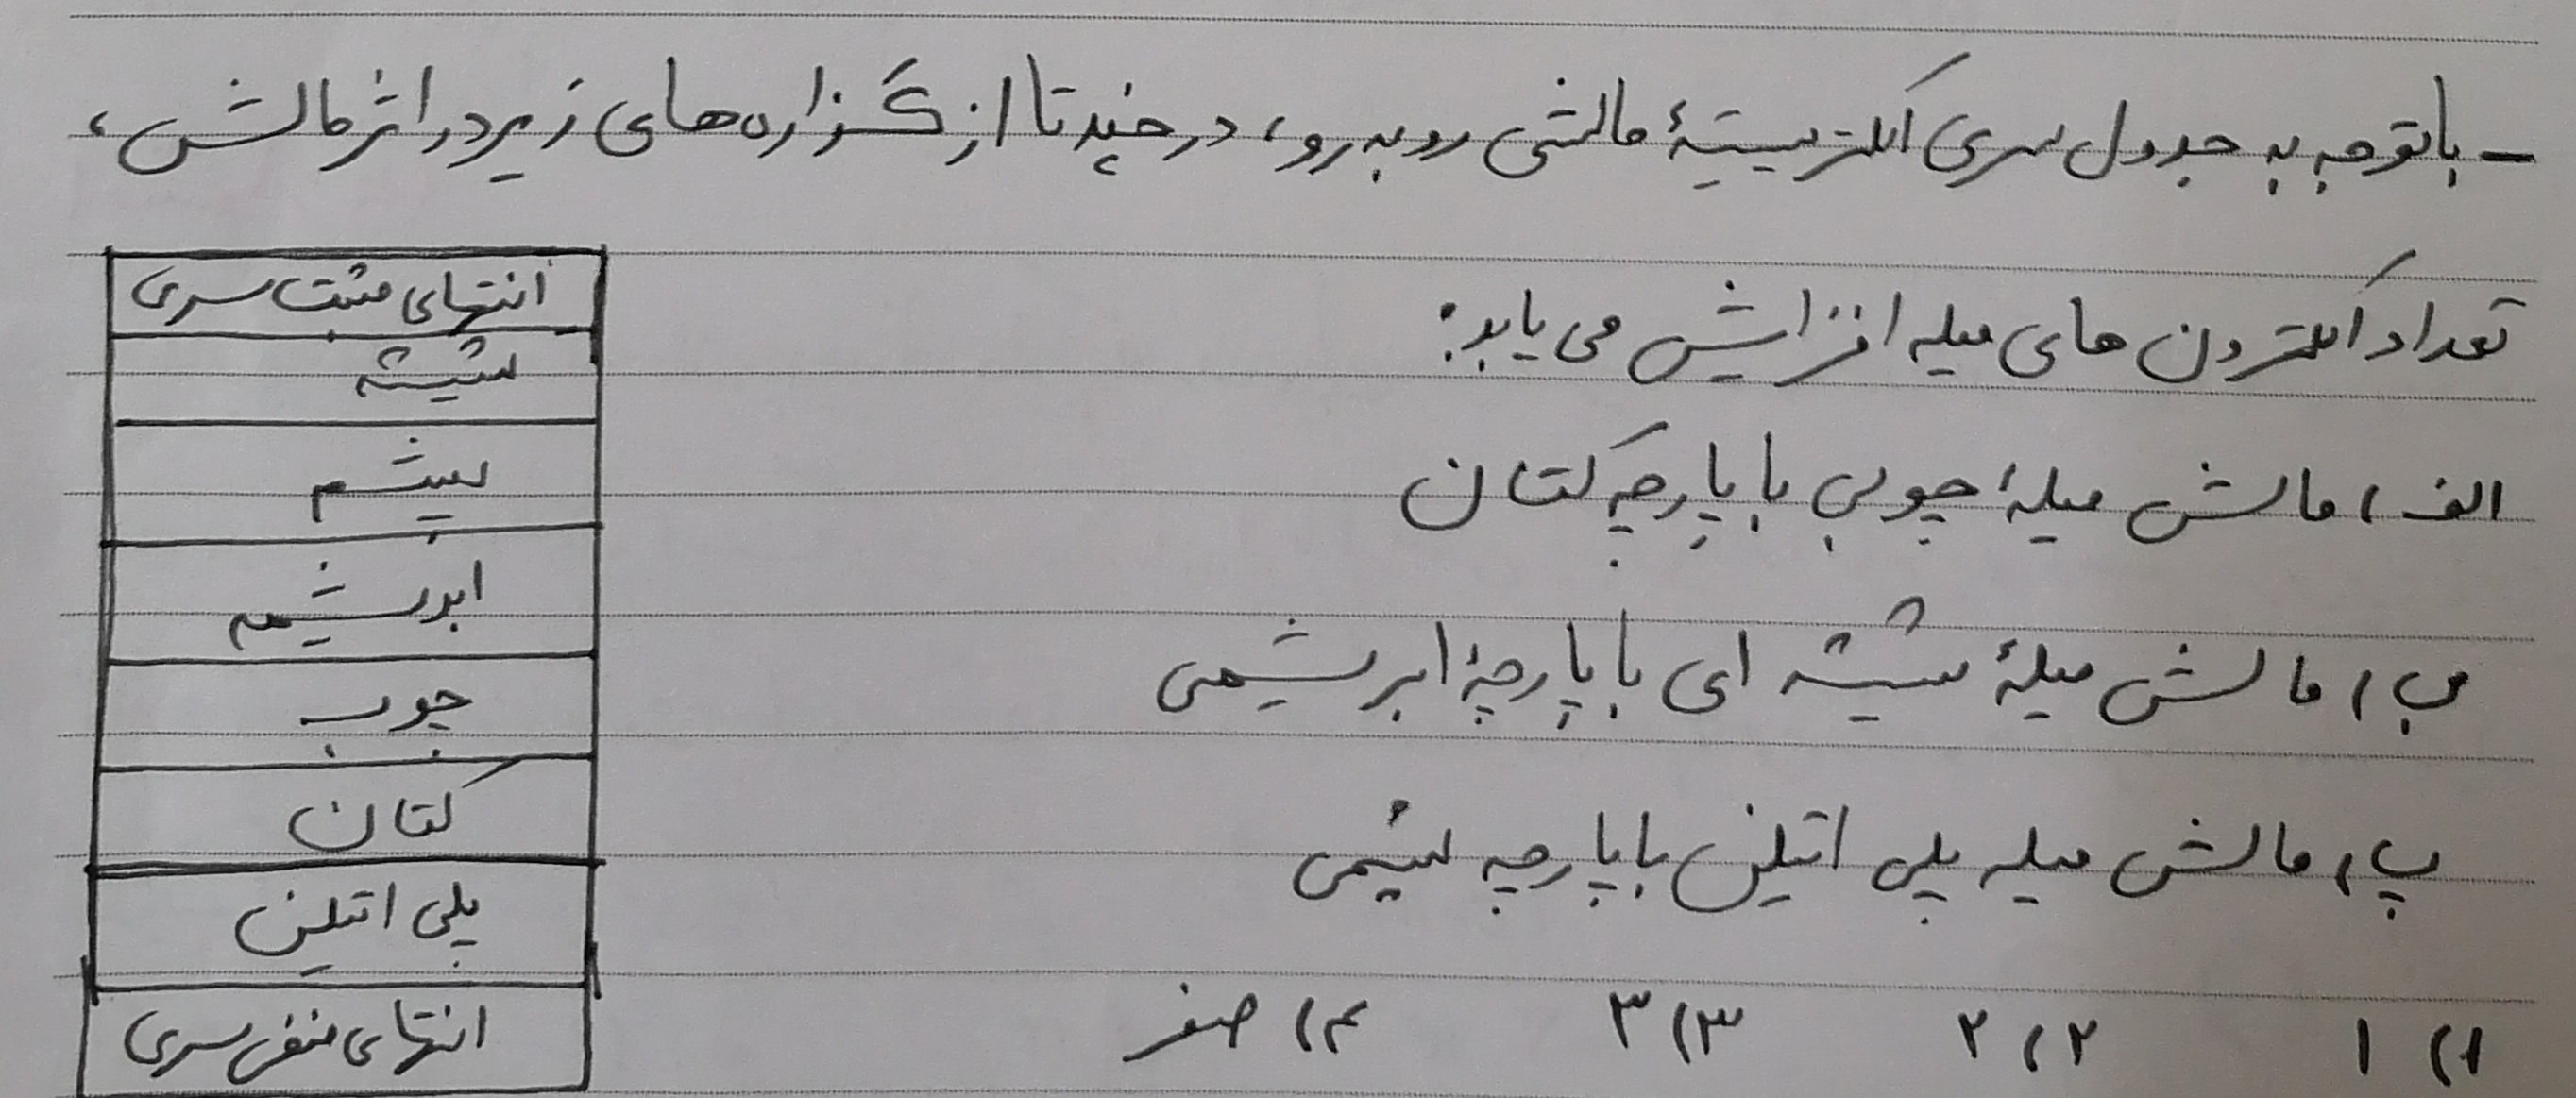 - باتوجه به جدول سری الکتریسیتهٔ مالشی روبه‌رو، در چند تا از گزاره‌های زیر در اثر مالش،
تعداد الکترون های میله افزایش می یابد:
الف) مالش میلهٔ چوبی با پارچه کتان
ب) مالش میلهٔ شیشه ای با پارچهٔ ابریشمی
پ) مالش میله پلی اتیلن با پارچه پشمی
۱) ۱ ۲) ۲ ۳) ۳ ۴) صفر
انتهای مثبت سری
شیشه
پشم
ابریشم
چوب
کتان
پلی اتیلن
انتهای منفی سری